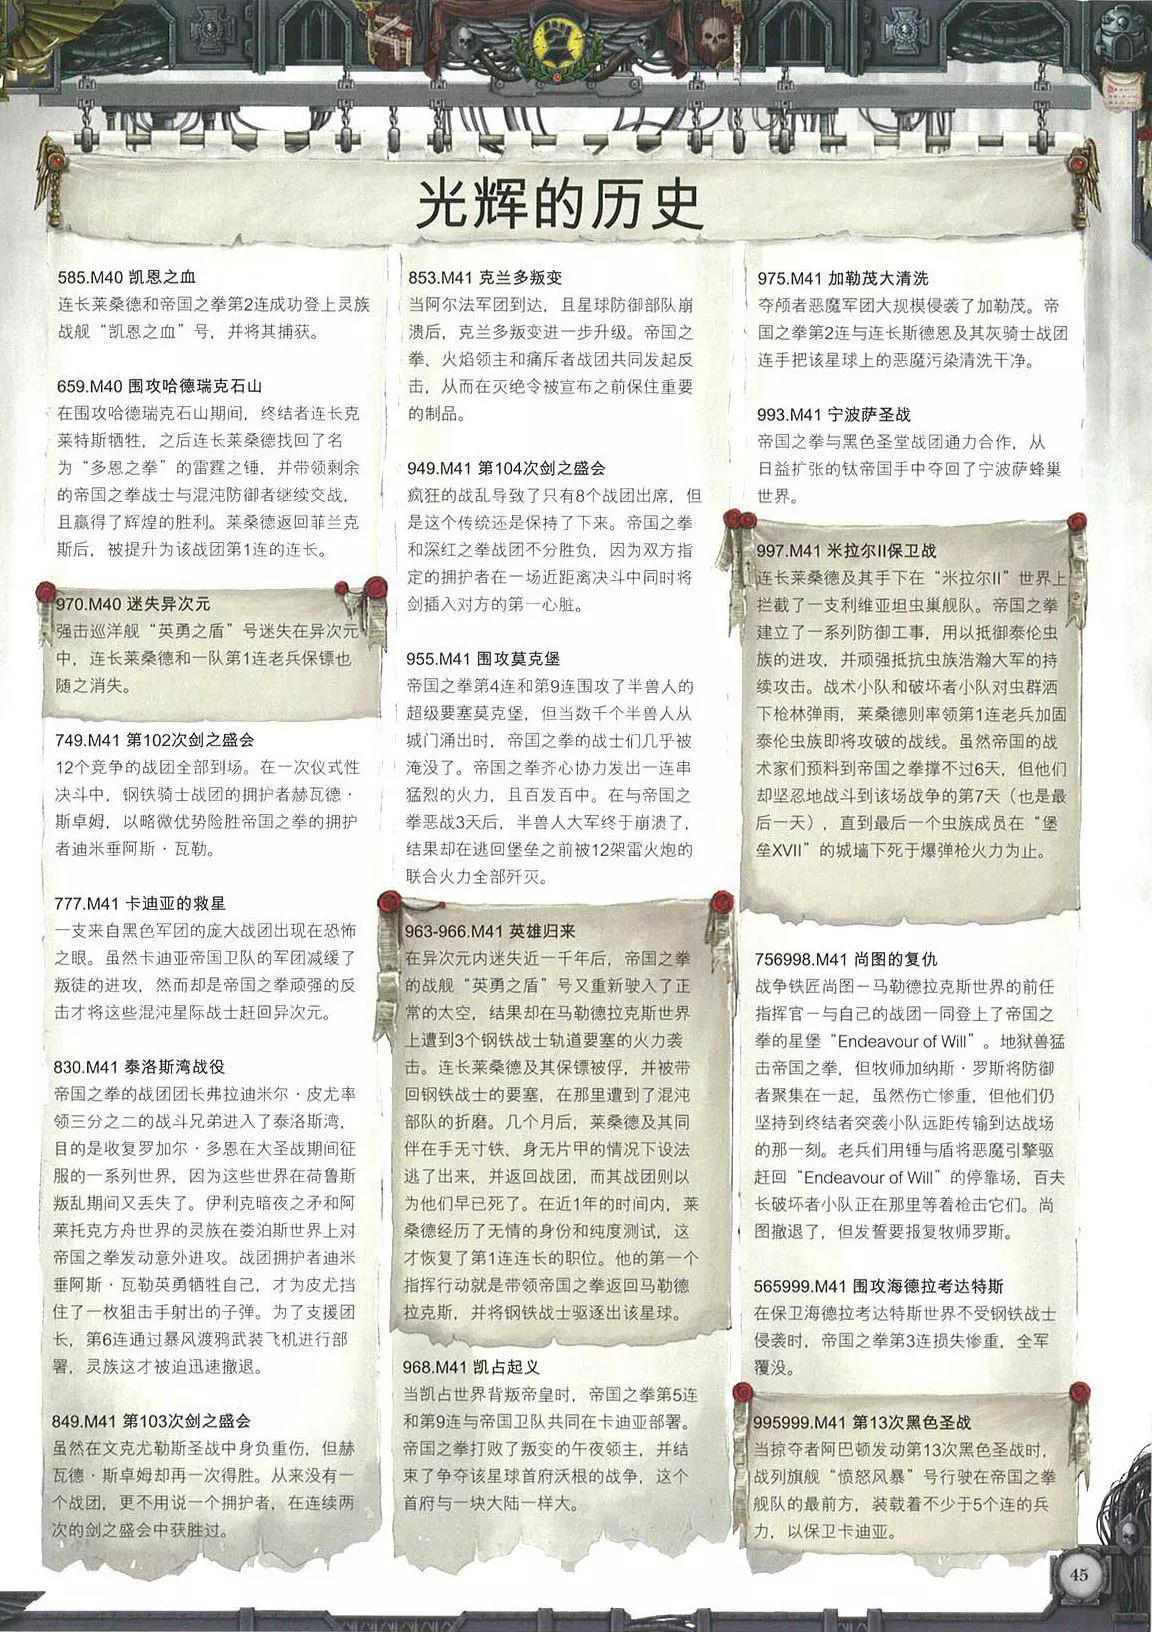 光辉的历史
585.M40 凯恩之血
连长莱桑德和帝国之拳第2连成功登上灵族
战舰“凯恩之血”号，并将其捕获。
659.M40 围攻哈德瑞克石山
在围攻哈德瑞克石山期间，终结者连长克
莱特斯牺牲，之后连长莱桑德找回了名
为“多恩之拳”的雷霆之锤，并带领剩余
的帝国之拳战士与混沌防御者继续交战，
且赢得了辉煌的胜利。莱桑德返回菲兰克
斯后，被提升为该战团第1连的连长。
970.M40 迷失异次元
强击巡洋舰“英勇之盾”号迷失在异次元
中，连长莱桑德和一队第1连老兵保镖也
随之消失。
749.M41 第102次剑之盛会
12个竞争的战团全部到场。在一次仪式性
决斗中，钢铁骑士战团的拥护者赫瓦德·
斯卓姆，以略微优势险胜帝国之拳的拥护
者迪米垂阿斯·瓦勒。
777.M41 卡迪亚的救星
一支来自黑色军团的庞大战团出现在恐怖
之眼。虽然卡迪亚帝国卫队的军团减缓了
叛徒的进攻，然而却是帝国之拳顽强的反
击才将这些混沌星际战士赶回异次元。
830.M41 泰洛斯湾战役
帝国之拳的战团团长弗拉迪米尔·皮尤率
领三分之二的战斗兄弟进入了泰洛斯湾，
目的是收复罗加尔·多恩在大圣战期间征
服的一系列世界，因为这些世界在荷鲁斯
叛乱期间又丢失了。伊利克暗夜之矛和阿
莱托克方舟世界的灵族在娄泊斯世界上对
帝国之拳发动意外进攻。战团拥护者迪米
垂阿斯·瓦勒英勇牺牲自己，才为皮尤挡
住了一枚狙击手射出的子弹。为了支援团
长，第6连通过暴风渡鸦武装飞机进行部
署，灵族这才被迫迅速撤退。
849.M41 第103次剑之盛会
虽然在文克尤勒斯圣战中身负重伤，但赫
瓦德·斯卓姆却再一次得胜。从来没有一
个战团，更不用说一个拥护者，在连续两
次的剑之盛会中获胜过。
853.M41 克兰多叛变
当阿尔法军团到达，且星球防御部队崩
溃后，克兰多叛变进一步升级。帝国之
拳、火焰领主和痛斥者战团共同发起反
击，从而在灭绝令被宣布之前保住重要
的制品。
949.M41 第104次剑之盛会
疯狂的战乱导致了只有8个战团出席，但
是这个传统还是保持了下来。帝国之拳
和深红之拳战团不分胜负，因为双方指
定的拥护者在一场近距离决斗中同时将
剑插入对方的第一心脏。
955.M41 围攻莫克堡
帝国之拳第4连和第9连围攻了半兽人的
超级要塞莫克堡，但当数千个半兽人从
城门涌出时，帝国之拳的战士们几乎被
淹没了。帝国之拳齐心协力发出一连串
猛烈的火力，且百发百中。在与帝国之
拳恶战3天后，半兽人大军终于崩溃了，
结果却在逃回堡垒之前被12架雷火炮的
联合火力全部歼灭。
963-966.M41 英雄归来
在异次元内迷失近一千年后，帝国之拳
的战舰“英勇之盾”号又重新驶入了正
常的太空，结果却在马勒德拉克斯世界
上遭到3个钢铁战士轨道要塞的火力袭
击。连长莱桑德及其保镖被俘，并被带
回钢铁战士的要塞，在那里遭到了混沌
部队的折磨。几个月后，莱桑德及其同
伴在手无寸铁、身无片甲的情况下设法
逃了出来，并返回战团，而其战团则以
为他们早已死了。在近1年的时间内，莱
桑德经历了无情的身份和纯度测试，这
才恢复了第1连连长的职位。他的第一个
指挥行动就是带领帝国之拳返回马勒德
拉克斯，并将钢铁战士驱逐出该星球。
968.M41 凯占起义
当凯占世界背叛帝皇时，帝国之拳第5连
和第9连与帝国卫队共同在卡迪亚部署。
帝国之拳打败了叛变的午夜领主，并结
束了争夺该星球首府沃根的战争，这个
首府与一块大陆一样大。
975.M41 加勒茂大清洗
夺颅者恶魔军团大规模侵袭了加勒茂。帝
国之拳第2连与连长斯德恩及其灰骑士战团
连手把该星球上的恶魔污染清洗干净。
993.M41 宁波萨圣战
帝国之拳与黑色圣堂战团通力合作，从
日益扩张的钛帝国手中夺回了宁波萨蜂巢
世界。
997.M41 米拉尔II保卫战
连长莱桑德及其手下在“米拉尔II”世界上
拦截了一支利维亚坦虫巢舰队。帝国之拳
建立了一系列防御工事，用以抵御泰伦虫
族的进攻，并顽强抵抗虫族浩瀚大军的持
续攻击。战术小队和破坏者小队对虫群洒
下枪林弹雨，莱桑德则率领第1连老兵加固
泰伦虫族即将攻破的战线。虽然帝国的战
术家们预料到帝国之拳撑不过6天，但他们
却坚忍地战斗到该场战争的第7天（也是最
后一天），直到最后一个虫族成员在“堡
垒XVII”的城墙下死于爆弹枪火力为止。
756998.M41 尚图的复仇
战争铁匠尚图－马勒德拉克斯世界的前任
指挥官－与自己的战团一同登上了帝国之
拳的星堡“Endeavour of Will”。地狱兽猛
击帝国之拳，但牧师加纳斯·罗斯将防御
者聚集在一起，虽然伤亡惨重，但他们仍
坚持到终结者突袭小队远距传输到达战场
的那一刻。老兵们用锤与盾将恶魔引擎驱
赶回“Endeavour of Will”的停靠场，百夫
长破坏者小队正在那里等着枪击它们。尚
图撤退了，但发誓要报复牧师罗斯。
565999.M41 围攻海德拉考达特斯
在保卫海德拉考达特斯世界不受钢铁战士
侵袭时，帝国之拳第3连损失惨重，全军
覆没。
995999.M41 第13次黑色圣战
当掠夺者阿巴顿发动第13次黑色圣战时，
战列旗舰“愤怒风暴”号行驶在帝国之拳
舰队的最前方，装载着不少于5个连的兵
力，以保卫卡迪亚。
45